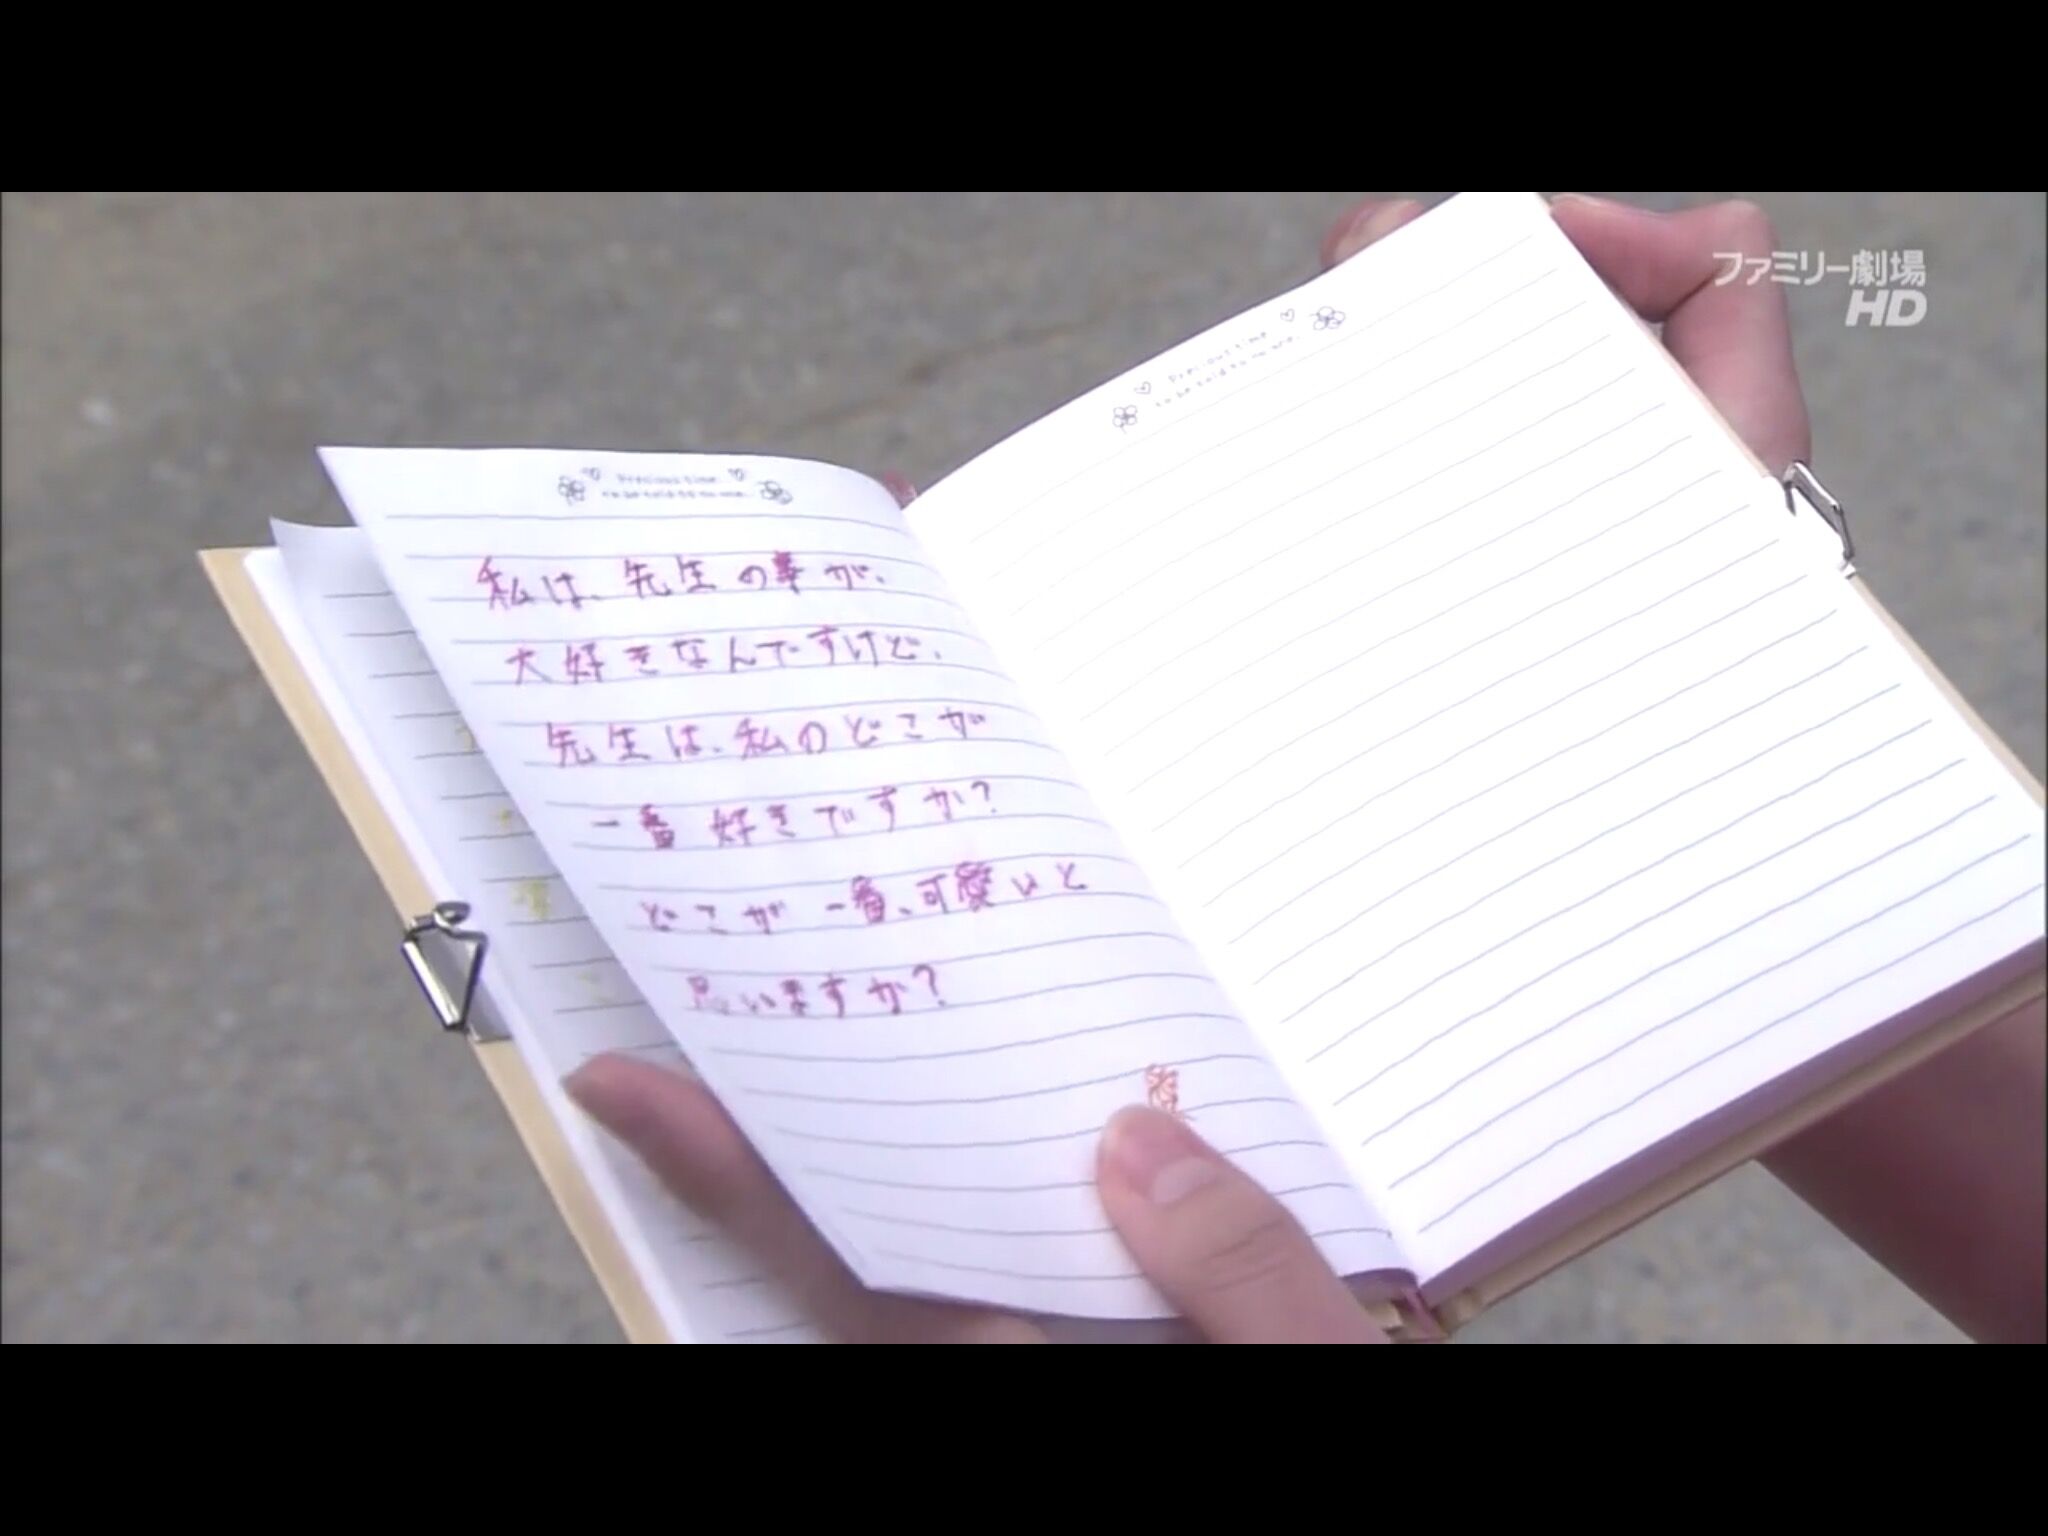 ファミリー劇場
HD
Precious time
to be told to no one.
私は、先生の事が、
大好きなんですけど、
先生は、私のどこが
一番好きですか?
どこが一番、可愛いと
思いますか?
Precious time
to be told to no one.